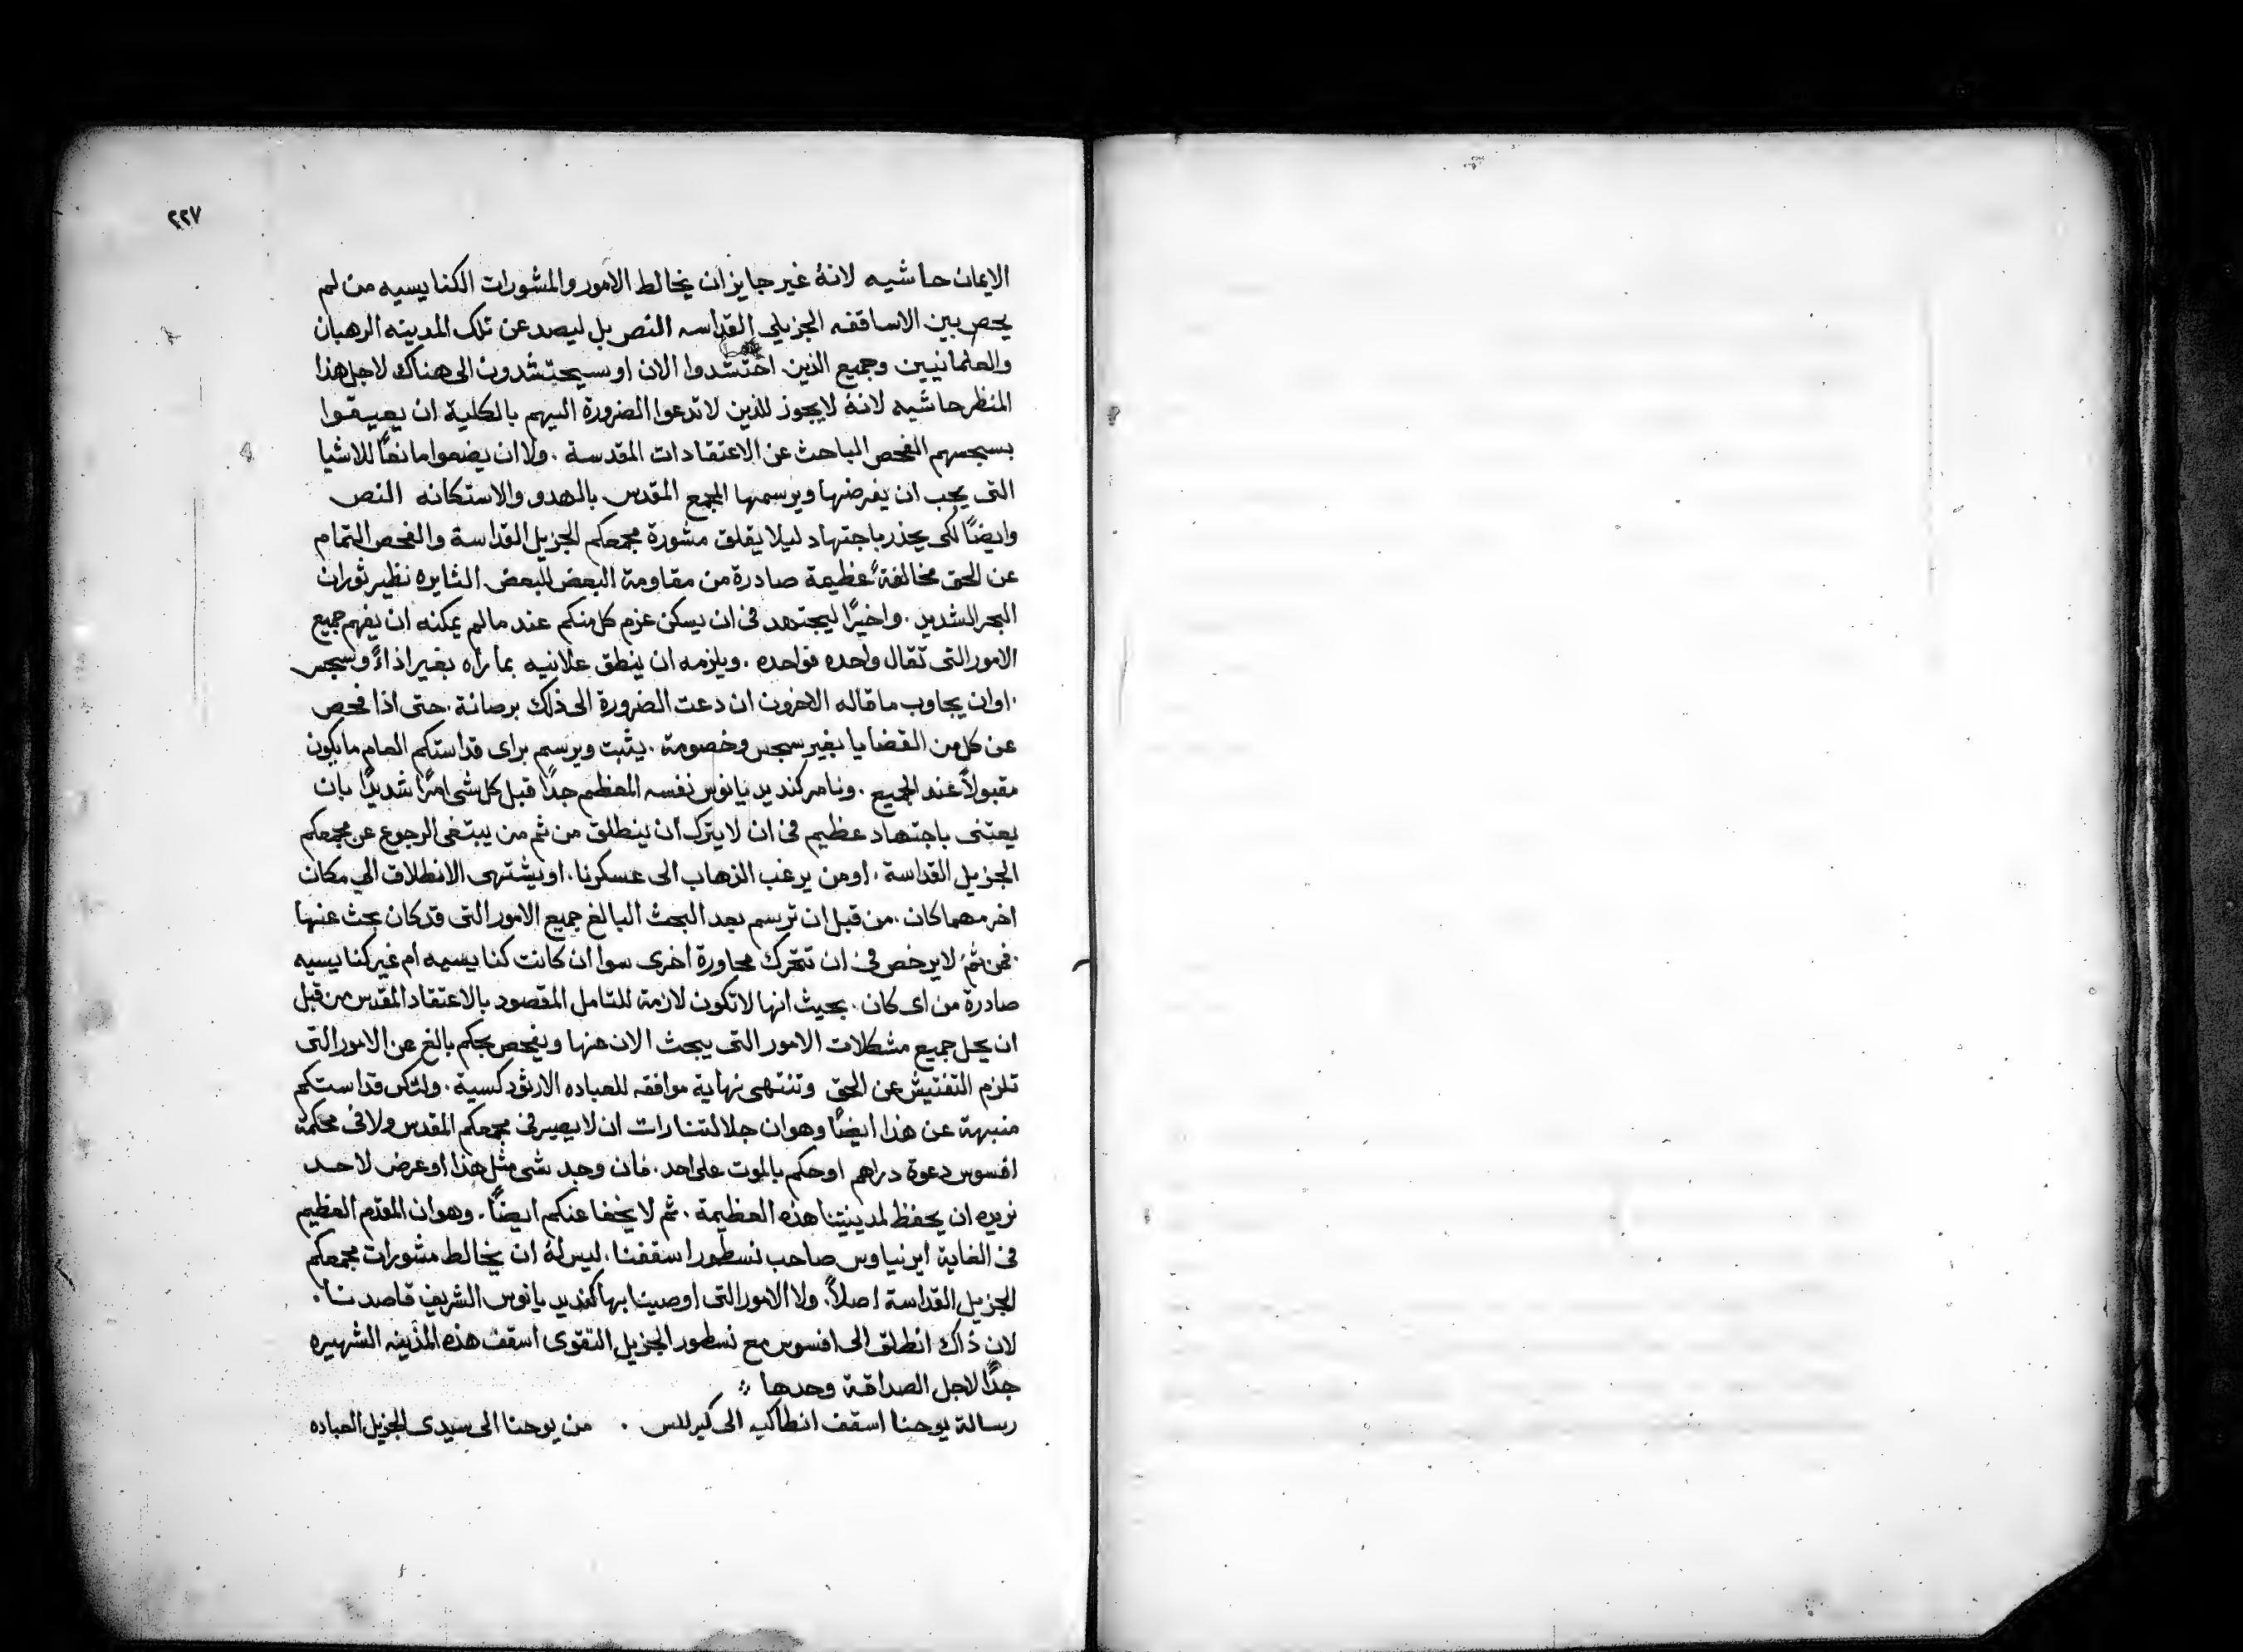 ٢٢٧
الايمان حاشيه لانهُ غير جايز ان يخالط الامور والمشورات الكنايسيه من لم
يحص بين الاساقفه الجزيلي القداسه النص بل ليصد عن تلك المدينه الرهبان
والعلمانيين وجميع الذين احتشدوا الان او سيحتشدون الى هناك لاجل هذا
المنظر حاشيه لانهُ لا يجوز للذين لا تدعوا الضرورة اليهم بالكلية ان يعيقوا
بسجسهم الفحص الباحث عن الاعتقادات المقدسة . ولا ان يضعوا مانعًا للاشيا
التى يجب ان يفرضها ويرسمها المجمع المقدس بالهدو والاستكانه النص
وايضًا لكى يحذر باجتهاد ليلا يقلق مشورة مجمعكم الجزيل القداسة والفحص التمام
عن الحق مخالفةً عظيمة صادرة من مقاومة البعض للبعض الثايره نظير ثوران
البحر الشديد . واخيرًا ليجتهد فى ان يسكن عزم كل منكم عند ما لم يمكنه ان يفهم جميع
الامور التى تقال واحده فواحده . ويلزمه ان ينطق علانيه بما راه بغير اذاءً وسجس
. او ان يجاوب ما قاله الاخرون ان دعت الضرورة الى ذلك برصانة . حتى اذا فحص
عن كل من القضايا بغير سجس وخصومة . يثبت ويرسم براى قداستكم العام ما يكون
مقبولاً عند الجميع . ونامر كنديديانوس نفسه المعظم جدًا قبل كل شى امرًا شديدًا بان
يعتنى باجتهاد عظيم فى ان لا يترك ان ينطلق من ثم من يبتغى الرجوع عن مجمعكم
الجزيل القداسة . او من يرغب الذهاب الى عسكرنا . او يشتهى الانطلاق الي مكان
اخر مهما كان . من قبل ان ترسم بعد البحث البالغ جميع الامور التى قد كان بحث عنها
. فمن ثمَ لا يرخص فى ان تتحرك محاورة اخرى سوا ان كانت كنايسيه ام غير كنايسيه
صادرة من اى كان . بحيث انها لا تكون لازمة للتامل المقصود بالاعتقاد المقدس من قبل
ان يحل جميع مشكلات الامور التى يبحث الان عنها ويفحص بحكم بالغ عن الامور التى
تلزم التفتيش عن الحق وتنتهى نهاية موافقه للعباده الارثودكسية . ولتكن قداستكم
منبهة عن هذا ايضًا وهو ان جلالتنا رات ان لا يصير فى مجمعكم المقدس ولا فى محكمة
افسوس دعوة دراهم او حكم بالموت على احد . فان وجد شى مثل هذا او عرض لاحد
نريده ان يحفظ لمدينيتنا هذه العظيمة . ثم لا يخفا عنكم ايضًا . وهو ان المقدم العظيم
فى الغاية ايرنياوس صاحب نسطور اسقفنا . ليس لهُ ان يخالط مشورات مجمعكم
الجزيل القداسة اصلاً . ولا الامور التى اوصينا بها كنديديانوس الشريف قاصدنا .
لان ذاك انطلق الى افسوس مع نسطور الجزيل التقوى اسقف هذه المدينه الشهيره
جدًا لاجل الصداقة وحدها ؞
رسالة يوحنا اسقف انطاكيه الى كيرللس . من يوحنا الى سيدى الجزيل العباده